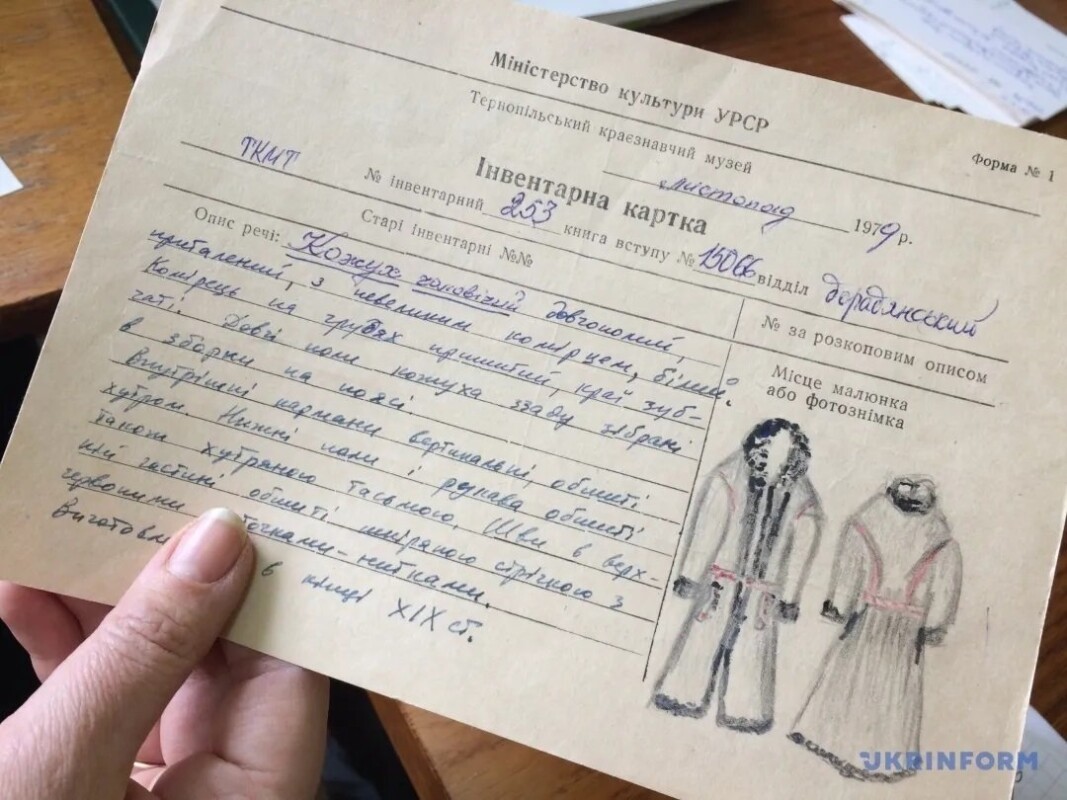 Міністерство культури УРСР
Тернопільський краєзнавчий музей
Форма № 1
Інвентарна картка
листопад 1979 р.
ТКМТ
№ інвентарний 253 книга вступу № 15066 відділ
Старі інвентарні №№
№ за розкоповим описом
Опис речі: Кожух чоловічий довгополий,
приталений, з невеликим комірцем, білий.
Комірець на грудях пришитий, край зуб-
чаті. Довгі поли кожуха ззаду зібрані
в зборки на поясі.
Внутрішні кармани вертикальні, обшиті
хутром. Нижні поли і рукава обшиті
також хутряною тасьмою. Шви в верх-
ній частині обшиті шкіряною стрічкою з
червоними нитками.
в кінці XIX ст.
Місце малюнка
або фотознімка
UKRINFORM